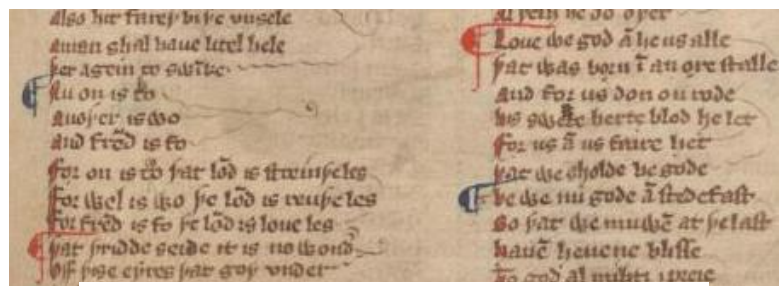 also hit fareþ bi þe unsele
aman shal haue litel hele
þer agein to swike
Nu on is to
anoþer is wo
and frēd is fo
for on is to þat lōd is streinþeles
for wel is wo þe lōd is reuþeles
for frēd is fo þe lōd is loue les
þat þridde seide it is no wond
off þise eyres þat goþ vnder
Loue we god ā he us alle
þat was born ī an oxe stalle
and for us don on rode
his swete herte blod he let
for us ā us faire het
þat we sholde be gode
be we nu gode ā stedefast
so þat we muwē at þe last
hauē heuene blisse
to god al mihti i preie